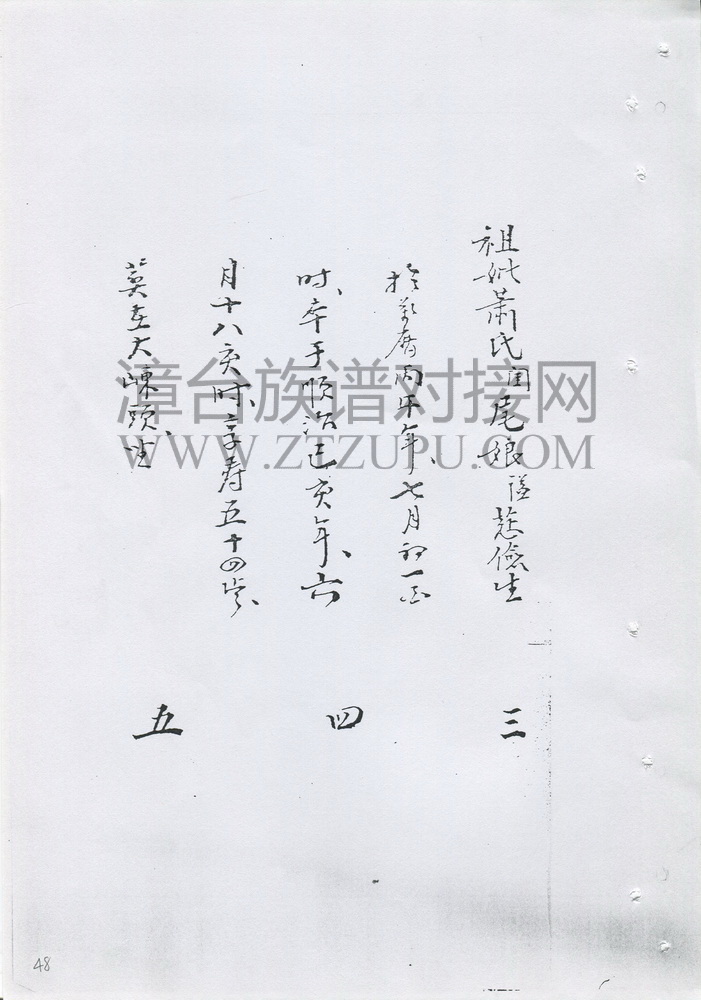 祖妣萧氏閏尾娘謚慈儉生
於萬曆丙午年、七月初一酉
时、卒于順治己亥年、六
月十八亥时、享寿五十四歲、
葬在大崠頭、坐
三
四
五
漳台族谱对接网
WWW.ZTZUPU.COM
48